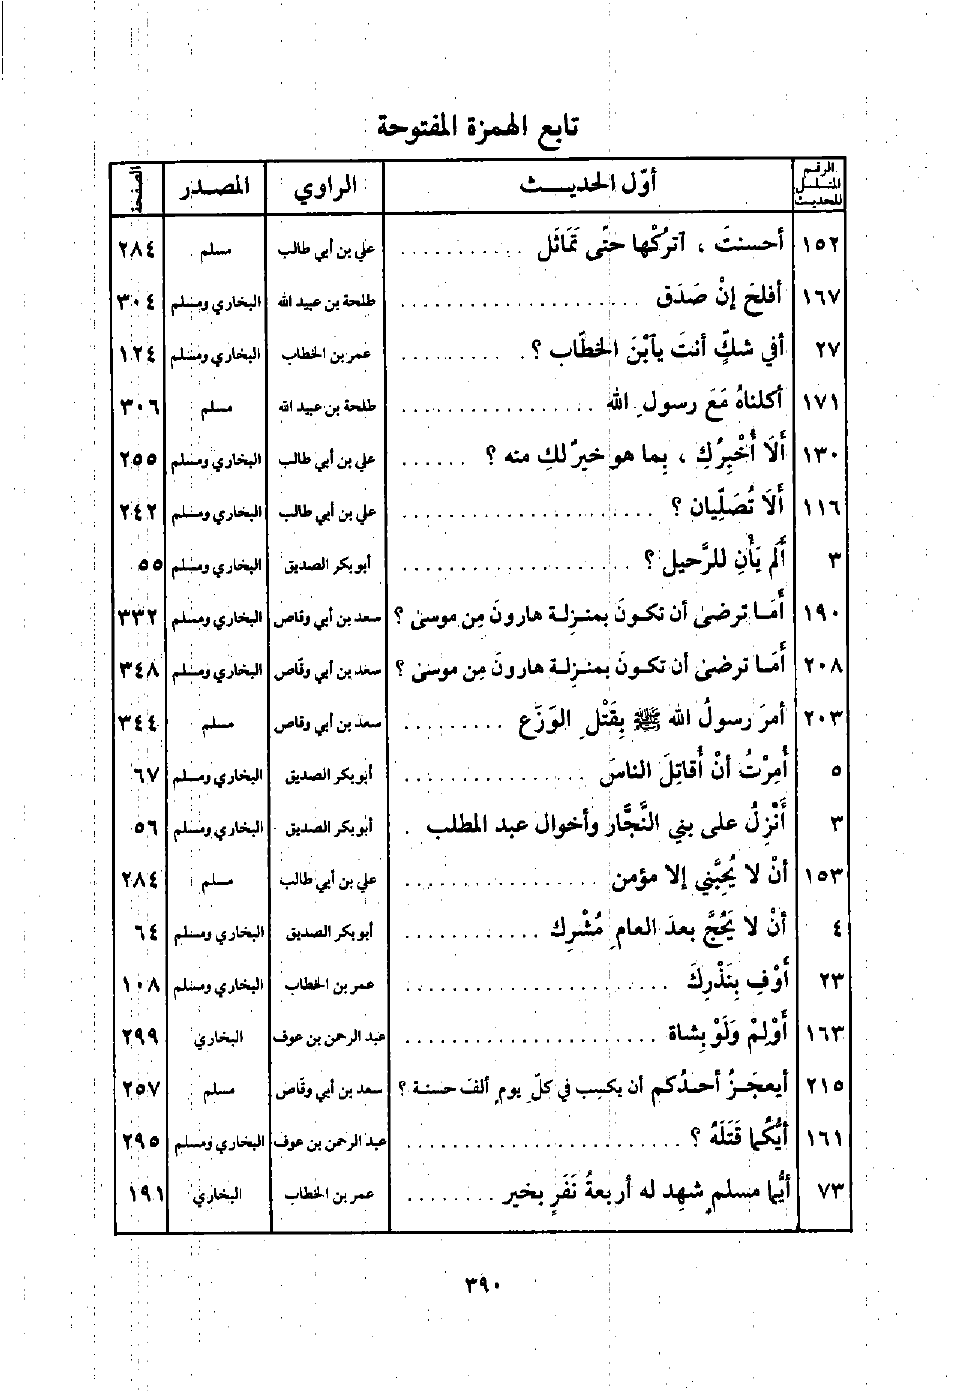 تابع الهمزة المفتوحة
الرقم المتسلسل للحديث | أوّل الحديث | الراوي | المصدر | الصفحة
١٥٢ | أحسنتَ ، آتركْها حتّى تَمَاثَل . . . . . . . . . . | علي بن أبي طالب | مسلم | ٢٨٤
١٦٧ | أفلحَ إنْ صَدَق . . . . . . . . . . | طلحة بن عبيد الله | البخاري ومسلم | ٣٠٤
٢٧ | أفي شكٍّ أنتَ يآبْنَ الخطّاب ؟ . . . . . . . . . . | عمر بن الخطاب | البخاري ومسلم | ١٢٤
١٧١ | أكلناهُ مَعَ رسولِ الله . . . . . . . . . . | طلحة بن عبيد الله | مسلم | ٣٠٦
١٣٠ | أَلَا أُخْبِرُكِ ، بِما هو خيرٌ لكِ منه ؟ . . . . . . | علي بن أبي طالب | البخاري ومسلم | ٢٥٥
١١٦ | أَلَا تُصَلِّيان ؟ . . . . . . . . . . | علي بن أبي طالب | البخاري ومسلم | ٢٤٢
٣ | أَلَم يَأْنِ للرَّحيل ؟ . . . . . . . . . . | أبو بكر الصديق | البخاري ومسلم | ٥٥
١٩٠ | أَمَا ترضى أن تكونَ بمنزلة هارونَ مِن موسىٰ ؟ | سعد بن أبي وقاص | البخاري ومسلم | ٣٣٢
٢٠٨ | أَمَا ترضىٰ أن تكونَ بمنزِلة هارونَ مِن موسىٰ ؟ | سعد بن أبي وقّاص | البخاري ومسلم | ٣٤٨
٢٠٣ | أمرَ رسولُ الله ﷺ بِقَتْلِ الوَزَغ . . . . . . . . | سعد بن أبي وقاص | مسلم | ٣٤٤
٥ | أُمِرْتُ أنْ أُقاتِلَ الناسَ . . . . . . . . . . | أبو بكر الصديق | البخاري ومسلم | ٦٧
٣ | أَنْزِلُ على بني النَّجَّار وأخوال عبد المطلب . | أبو بكر الصديق | البخاري ومسلم | ٥٦
١٥٣ | أنْ لا يُحِبَّني إلا مؤمن . . . . . . . . . . | علي بن أبي طالب | مسلم | ٢٨٤
٤ | أنْ لا يَحُجَّ بعدَ العامِ مُشْرِك . . . . . . . . . . | أبو بكر الصديق | البخاري ومسلم | ٦٤
٢٣ | أَوْفِ بِنَذْرِكَ . . . . . . . . . . | عمر بن الخطاب | البخاري ومسلم | ١٠٨
١٦٣ | أَوْلِمْ وَلَوْ بِشاة . . . . . . . . . . | عبد الرحمن بن عوف | البخاري | ٢٩٩
٢١٥ | أيعجَزُ أحدُكم أن يكسِب في كلّ يومٍ ألفَ حسنة ؟ | سعد بن أبي وقّاص | مسلم | ٢٥٧
١٦١ | أيُّكُما قَتَلَهُ ؟ . . . . . . . . . . | عبد الرحمن بن عوف | البخاري ومسلم | ٢٩٥
٧٣ | أيُّما مسلمٍ شهِد له أربعةُ نَفَرٍ بخير . . . . . . . . | عمر بن الخطاب | البخاري | ١٩١
٣٩٠